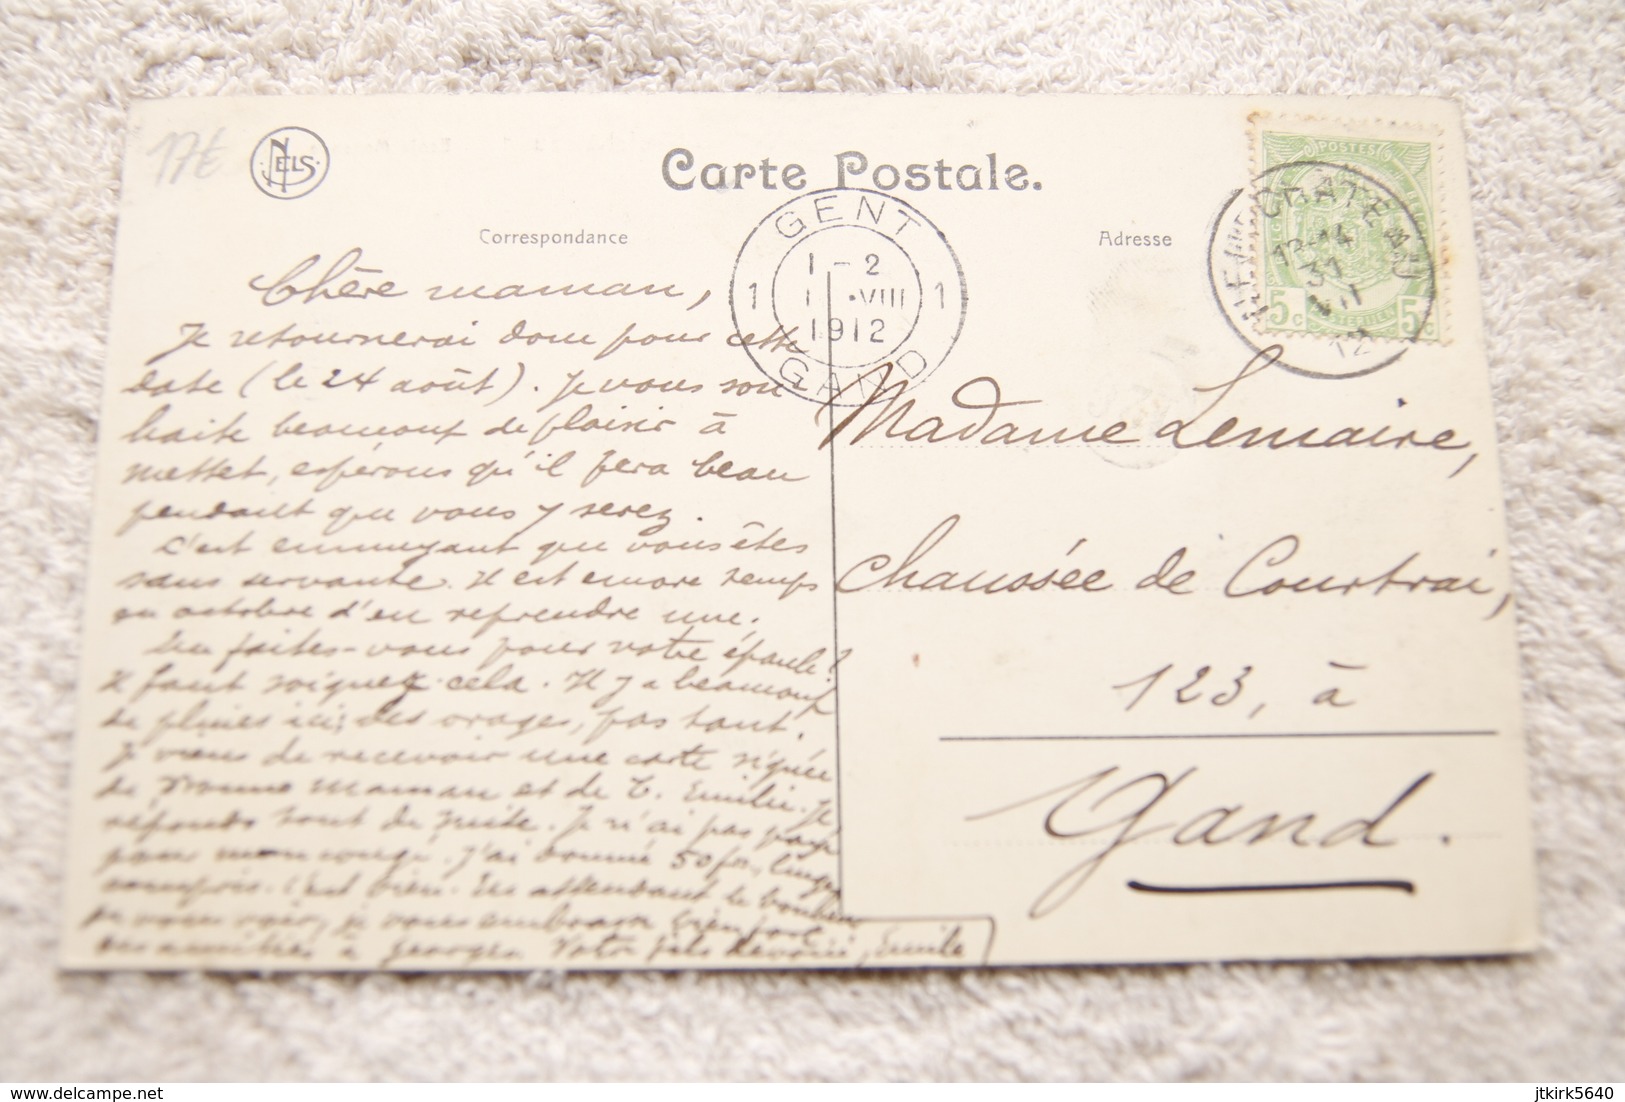 17€
NELS
Carte Postale.
Correspondance
Adresse
GENT
1-2
1 1 .VIII 1
1912
GAND
VIEUX
CHATEAU
13-14
31
12
POSTES
5c 5c
Chère maman,
Je retournerai donc pour cette
date (le 24 août). Je vous sou
haite beaucoup de plaisir à
Mettet, espérons qu'il fera beau
pendant que vous y serez.
C'est ennuyant que vous êtes
sans servante. Il est encore temps
en octobre d'en reprendre une.
En faites-vous pour votre épaule?
Il faut soigner cela. Il y a beaucoup
de pluies ici; des orages, pas tant.
Je viens de recevoir une carte signée
de Yvonne Maman et de T. Emilie. Je
réponds tout de suite. Je n'ai pas payé
pour mon congé. J'ai donné 50 frs, linge
compris. C'est bien. En attendant le bonheur
de vous voir, je vous embrasse bien fort
mes amitiés à Georges. Votre fils dévoué, Emile
Madame Lemaire,
Chaussée de Courtrai,
123, à
Gand.
delcampe.net
jtkirk5640